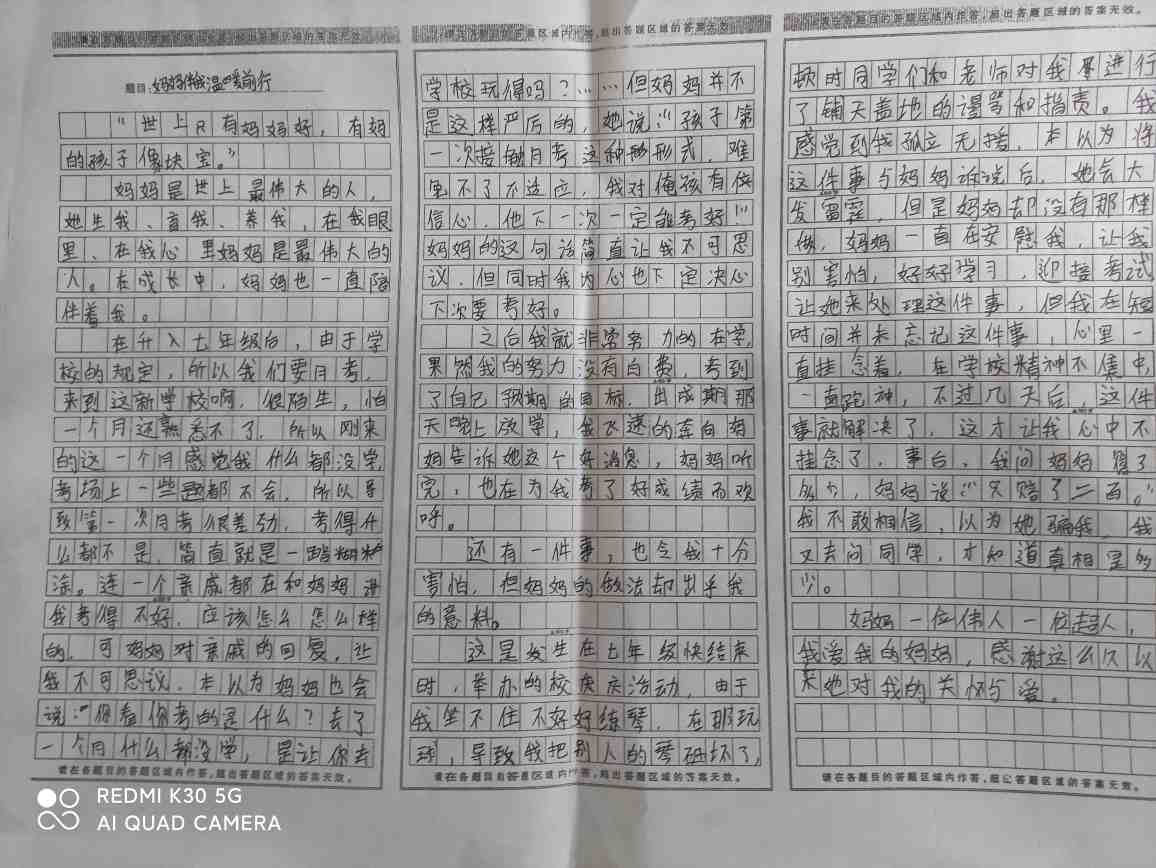 请在各题目的答题区域内作答,超出答题区域的答案无效。
题目:妈妈伴我温暖前行
“世上只有妈妈好,有妈
的孩子像块宝。”
妈妈是世上最伟大的人,
她生我、育我、养我,在我眼
里、在我心里妈妈是最伟大的
人。在成长中,妈妈也一直陪
伴着我。
在升入七年级后,由于学
校的规定,所以我们要月考,
来到这新学校啊,很陌生,怕
一个月还熟悉不了,所以刚来
的这一个月感觉我什么都没学,
考场上一些题都不会,所以导
致第一次月考很差劲,考得什
么都不是,简直就是一踏糊
涂。连一个亲戚都在和妈妈讲
我考得不好,应该怎么怎么样
的,可妈妈对亲戚的回复,让
我不可思议,本以为妈妈也会
说:“你看你考的是什么?去了
一个月什么都没学,是让你去
请在各题目的答题区域内作答,超出答题区域的答案无效。
请在各题目的答题区域内作答,超出答题区域的答案无效。
学校玩得吗?……但妈妈并不
是这样严厉的,她说:“孩子第
一次接触月考这种形式,难
免不了不适应,我对俺孩有信
信心,他下一次一定能考好!”
妈妈的这句话简直让我不可思
议,但同时我内心也下定决心
下次要考好。
之后我就非常努力的在学,
果然我的努力没有白费,考到
了自己预期的目标,出成期那
天晚上放学,我飞速的奔向妈
妈告诉她这个好消息,妈妈听
完,也在为我考了好成绩而欢
呼。
还有一件事,也令我十分
害怕,但妈妈的做法却出乎我
的意料。
这是发生在七年级快结束
时,举办的校庆活动,由于
我坐不住不好好练琴,在那玩
球,导致我把别人的琴砸坏了,
请在各题目的答题区域内作答,超出答题区域的答案无效。
请在各题目的答题区域内作答,超出答题区域的答案无效。
顿时同学们和老师对我进行
了铺天盖地的谩骂和指责。我
感觉到我孤立无援,本以为将
这件事与妈妈诉说后,她会大
发雷霆,但是妈妈却没有那样
做,妈妈一直在安慰我,让我
别害怕,好好学习,迎接考试
让她来处理这件事,但我在短
时间并未忘记这件事,心里一
直挂念着,在学校精神不集中,
一直跑神,不过几天后,这件
事就解决了,这才让我心中不
挂念了,事后,我问妈妈赔了
多少,妈妈说:“只赔了二百。”
我不敢相信,以为她骗我,我
又去问同学,才知道真相是多
少。
妈妈一位伟人一位超人,
我爱我的妈妈,感谢这么久以
来她对我的关怀与爱。
请在各题目的答题区域内作答,超出答题区域的答案无效。
REDMI K30 5G
AI QUAD CAMERA